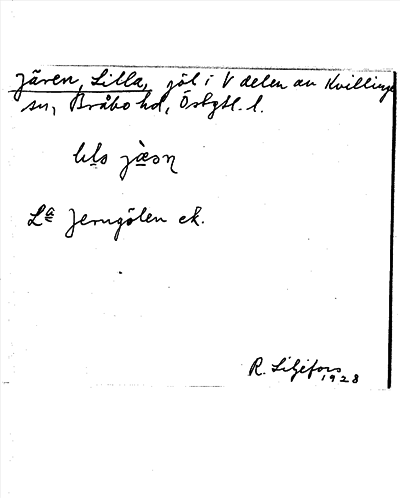 Jären, Lilla, göl i V delen av Kvillinge
sn, Bråbo hd, Östgtl. l.
La Jerngölen ek.
R. Liljefors
1928